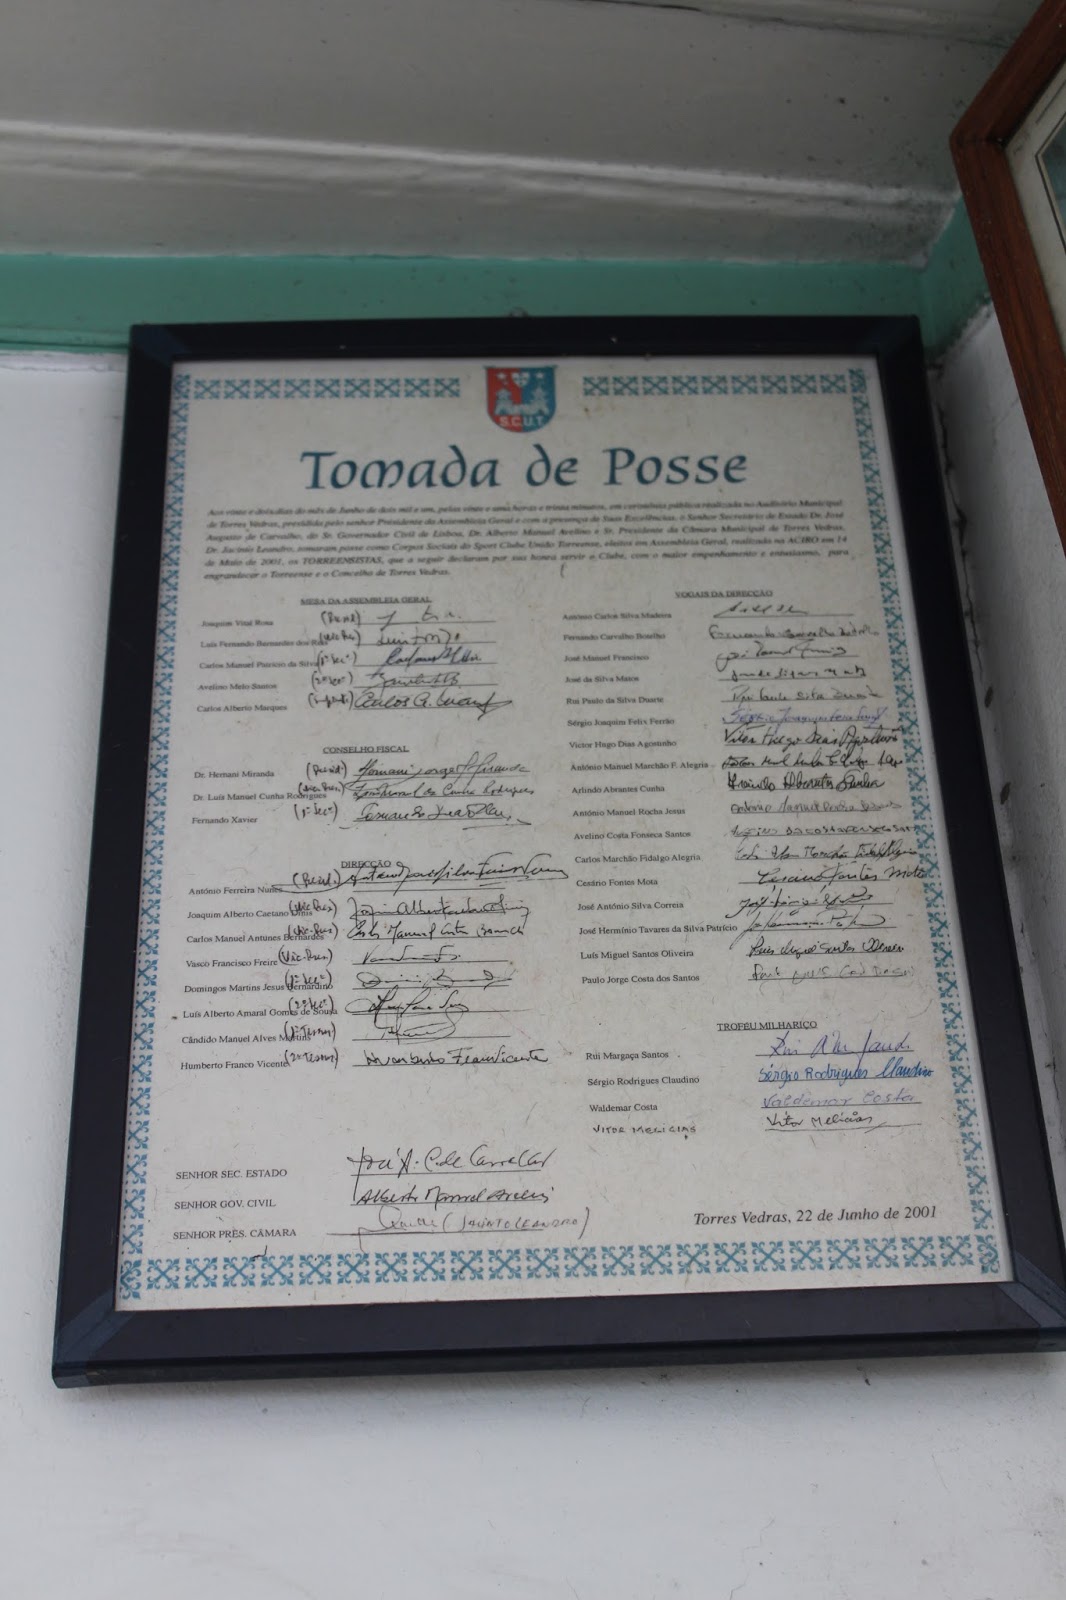 S.C.U.T.
Tomada de Posse
Aos vinte e dois dias do mês de Junho de dois mil e um, pelas vinte e uma horas e trinta minutos, em cerimónia pública realizada no Auditório Municipal
de Torres Vedras, presidida pelo senhor Presidente da Assembleia Geral e com a presença de Suas Excelências, o Senhor Secretário de Estado Dr. José
Augusto de Carvalho, do Sr. Governador Civil de Lisboa, Dr. Alberto Manuel Avelino e Sr. Presidente da Câmara Municipal de Torres Vedras,
Dr. Jacinto Leandro, tomaram posse como Corpos Sociais do Sport Clube União Torreense, eleitos em Assembleia Geral, realizada na ACIRO em 14
de Maio de 2001, os TORREENSISTAS, que a seguir declaram por sua honra servir o Clube, com o maior empenhamento e entusiasmo, para
engrandecer o Torreense e o Concelho de Torres Vedras.
MESA DA ASSEMBLEIA GERAL
Joaquim Vital Rosa (Presid)
Luís Fernando Bernardes dos Reis (Vic-Pres)
Carlos Manuel Patrício da Silva (1º Secº)
Avelino Melo Santos (2º Secº)
Carlos Alberto Marques Carlos A.
CONSELHO FISCAL
Dr. Hernani Miranda (Presid) Hernani Jorge Miranda
Dr. Luís Manuel Cunha Rodrigues (Vic-Pres) Cunha Rodrigues
Fernando Xavier (1º Secº)
DIRECÇÃO
António Ferreira Nunes (Presid.)
Joaquim Alberto Caetano Dinis (Vic-Pres) Joaquim Alberto
Carlos Manuel Antunes Bernardes (Vic-Pres) Carlos Manuel
Vasco Francisco Freire (Vic-Pres)
Domingos Martins Jesus Bernardino (1º Secº)
Luís Alberto Amaral Gomes de Sousa (2º Secº)
Cândido Manuel Alves Martins (1º Tesour)
Humberto Franco Vicente (2º Tesour) Humberto Franco Vicente
VOGAIS DA DIRECÇÃO
António Carlos Silva Madeira
Fernando Carvalho Boalho
José Manuel Francisco
José da Silva Matos
Rui Paulo da Silva Duarte Rui Paulo Silva Duarte
Sérgio Joaquim Felix Ferrão
Victor Hugo Dias Agostinho Vitor Hugo Dias Agostinho
António Manuel Marchão F. Alegria
Arlindo Abrantes Cunha Arlindo Abrantes Cunha
António Manuel Rocha Jesus António Manuel Rocha Jesus
Avelino Costa Fonseca Santos
Carlos Marchão Fidalgo Alegria
Cesário Fontes Mota Cesário Fontes Mota
José António Silva Correia
José Hermínio Tavares da Silva Patrício
Luís Miguel Santos Oliveira Luis Miguel Santos Oliveira
Paulo Jorge Costa dos Santos
TROFÉU MILHARIÇO
Rui Margaça Santos
Sérgio Rodrigues Claudino Sérgio Rodrigues Claudino
Waldemar Costa Valdemar Costa
VITOR MELICIAS Vitor Melícias
SENHOR SEC. ESTADO José A. C. de Carvalho
SENHOR GOV. CIVIL Alberto Manuel Avelino
SENHOR PRES. CÂMARA (JACINTO LEANDRO)
Torres Vedras, 22 de Junho de 2001